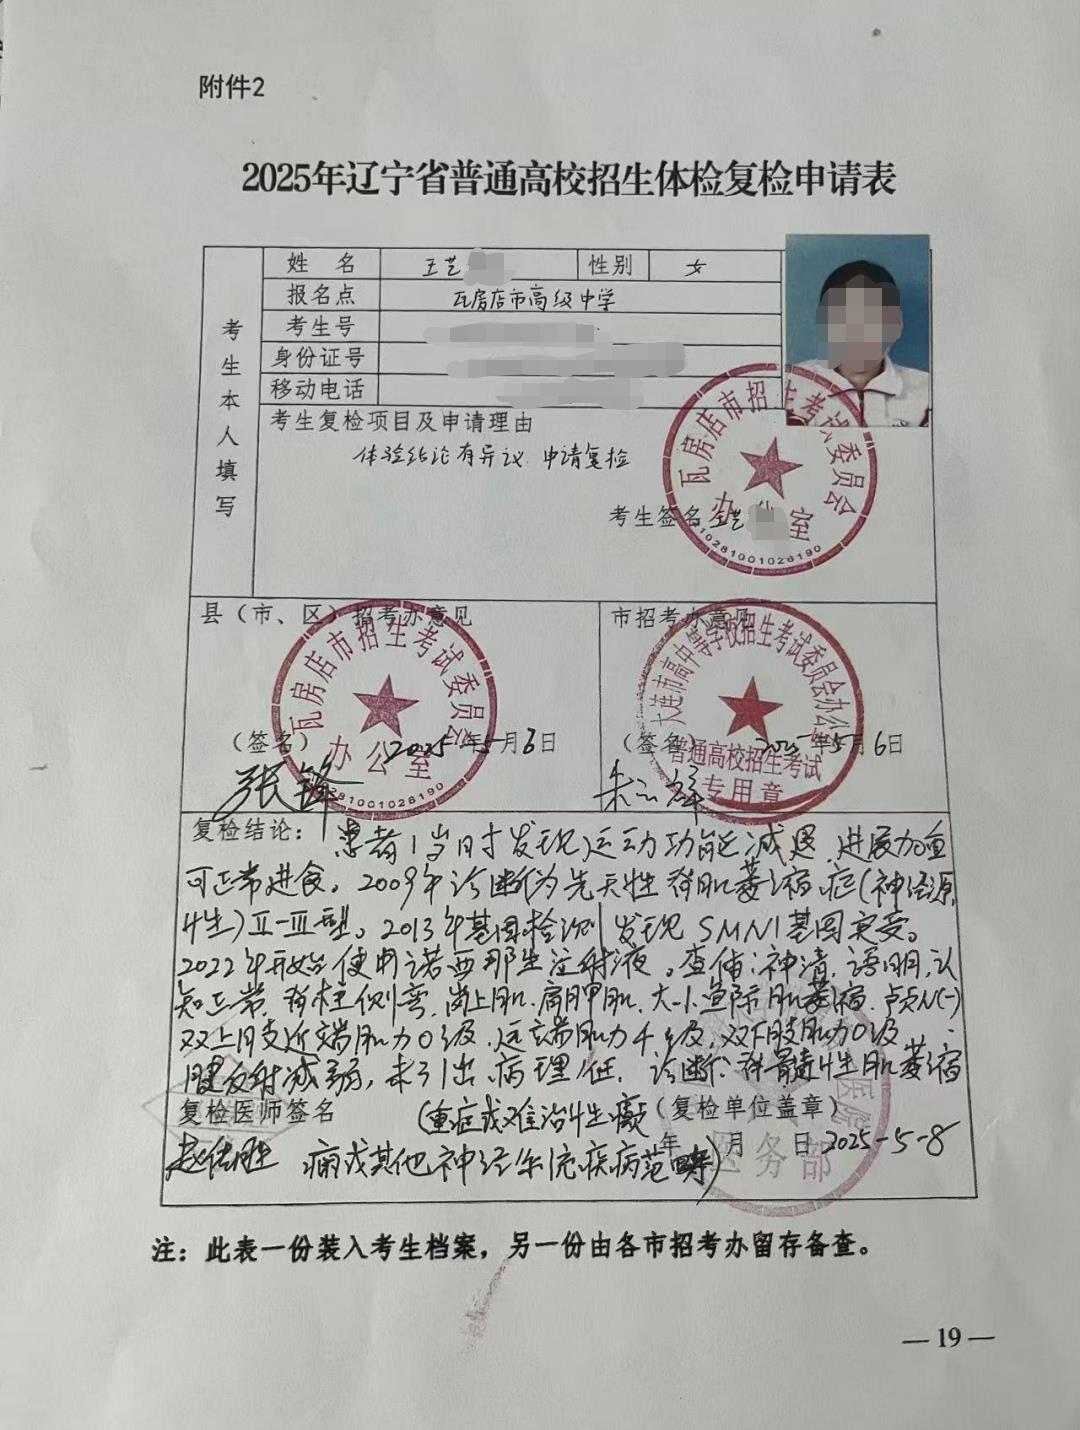 附件2
2025年辽宁省普通高校招生体检复检申请表
考生本人填写
姓名 王艺 性别 女
报名点 瓦房店市高级中学
考生号
身份证号
移动电话
考生复检项目及申请理由
体验结论有异议 申请复检
考生签名 王艺
瓦房店市招生考试委员会
办公室
210281001026190
县（市、区）招考办意见
瓦房店市招生考试委员会
办公室
（签名） 2025年5月6日
张锋
市招考办意见
大连市高中等学校招生考试委员会办公室
普通高校招生考试
专用章
（签名） 2025年5月6日
复检结论：患者1岁时发现运动功能减退，进展加重
可正常进食。2009年诊断为先天性脊肌萎缩症（神经源
性）II-III型。2013年基因检测发现SMN1基因突变。
2022年开始使用诺西那生注射液。查体：神清，语明，认
知正常，脊柱侧弯，岗上肌、肩胛肌、大小鱼际肌萎缩，颅N(-)
双上肢近端肌力0级，远端肌力4级，双下肢肌力0级，
腱反射减弱，未引出病理征。诊断：脊髓性肌萎缩
（重症或难治性癫
痫或其他神经系统疾病范畴）
复检医师签名
（复检单位盖章）
年 月 日 2025-5-8
医院
医务部
注：此表一份装入考生档案，另一份由各市招考办留存备查。
— 19 —